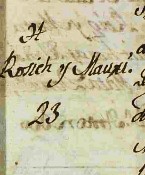 H
Rosich y Mauri.
23